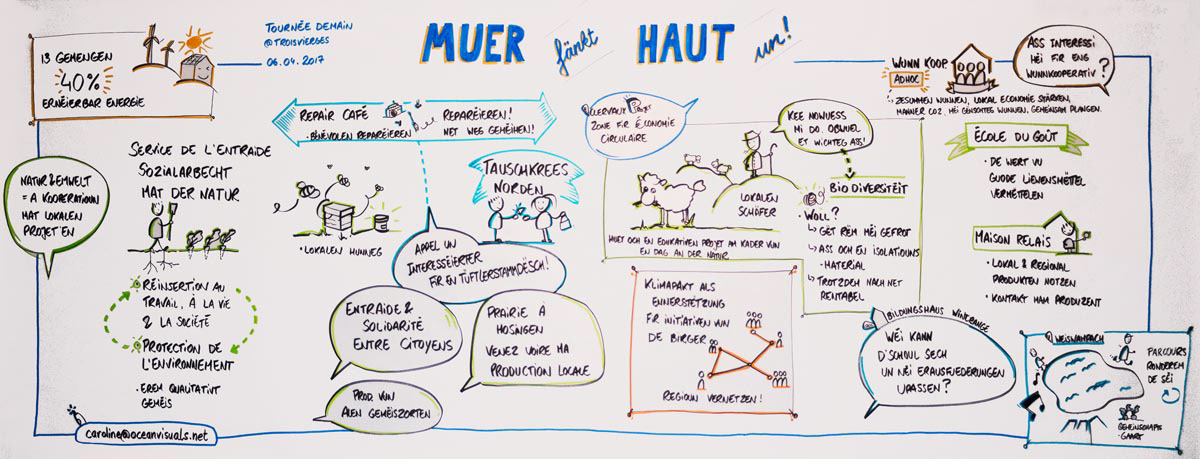 MUER fänkt HAUT un!
TOURNÉE DEMAIN
@TROISVIERGES
06.04.2017
13 GEMENGEN
40%
ERNÉIERBAR ENERGIE
NATUR & EMWELT
= A KOOPERATIOUN
MAT LOKALEN
PROJETEN
SERVICE DE L'ENTRAIDE
SOZIALARBECHT
MAT DER NATUR
RÉINSERTION AU
TRAVAIL, À LA VIE
& LA SOCIÉTÉ
PROTECTION DE
L'ENVIRONNEMENT
· EREM QUALITATIVT
GEMÉIS
caroline@oceanvisuals.net
REPAIR CAFÉ
· BÉNÉVOLEN REPARÉIEREN
REPARÉIEREN!
NET WEG GEHÉIHEN!
· LOKALEN HUNNEG
TAUSCHKREES
NORDEN
APPEL UN
INTERESSÉIERTER
FIR EN TÜFTLERSTAMMDËSCH!
ENTRAIDE &
SOLIDARITÉ
ENTRE CITOYENS
PROD. VUN
ALEN GEMÉISZORTEN
PRAIRIE À
HOSINGEN
VENEZ VOIRE MA
PRODUCTION LOCALE
CLERVAUX
ZONE FIR ÉCONOMIE
CIRCULAIRE
KEE NOWUESS
MI DO. OBWUEL
ET WICHTEG ASS!
LOKALEN
SCHÉFER
HUET OCH EN EDUKATIVEN PROJET AM KADER VUN
EN DAG AN DER NATUR
BIODIVERSTÉIT
· WOLL?
GËT REM MÉI GEFROT
ASS OCH EN ISOLATIOUNS
-MATERIAL
TROTZDEM NACH NET
RENTABEL
KLIMAPAKT ALS
ENNERSTËTZUNG
FIR INITIATIVEN VUN
DE BIRGER
REGIOUN VERNETZEN!
BILDUNGSHAUS WINCRANGE
WÉI KANN
D'SCHOUL SECH
UN NEI ERAUSFUEDERUNGEN
UPASSEN?
WUNN KOOP
ADHOC
ASS INTERESSI
HEI FIR ENG
WUNNKOOPERATIV?
ZESUMMEN WUNNEN, LOKAL ECONOMIE STÄRKEN,
MANNER CO2, MÉI GËNSCHTEG WUNNEN, GEMEINSAM PLANGEN.
ÉCOLE DU GOÛT
· DE WERT VU
GUDDE LIEWENSMËTTEL
VERMËTTELEN
MAISON RELAIS
· LOKAL & REGIONAL
PRODUKTEN NOTZEN
· KONTAKT MAM PRODUZENT
WEISWAMPACH
PARCOURS
RONDEREM
DE SÉI
GEMEINSCHAFTS
-GAART